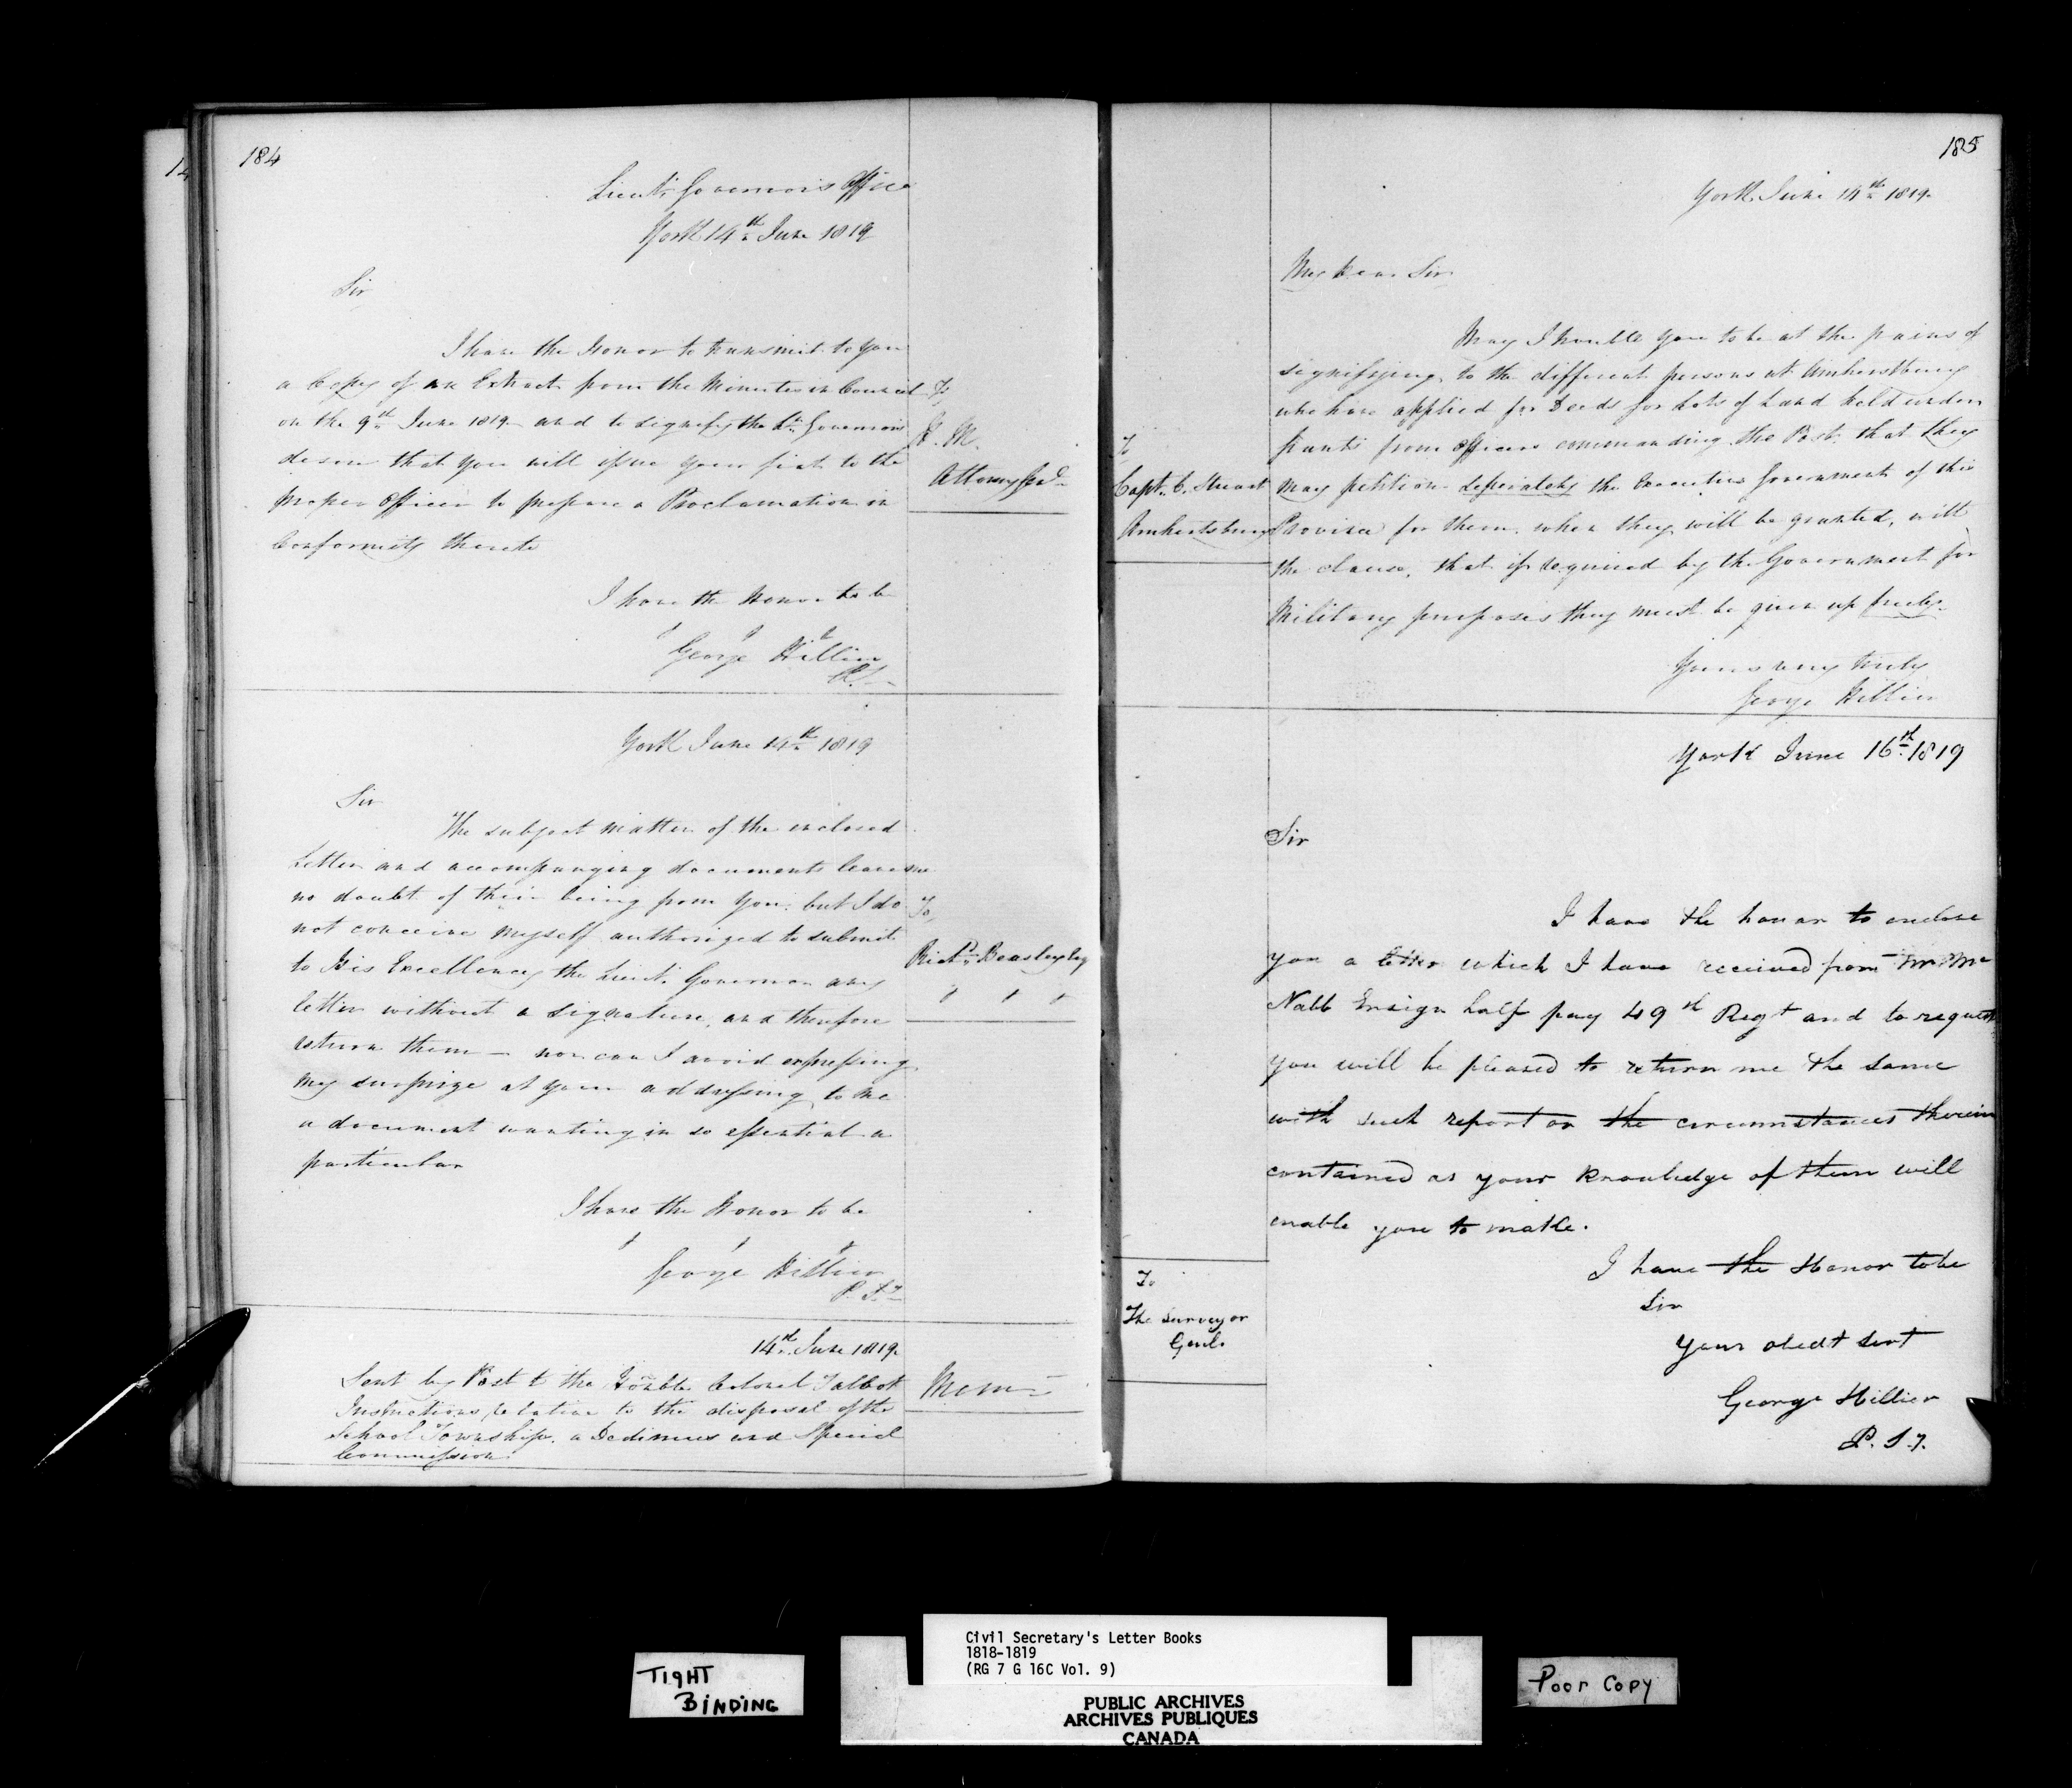 184
Lieut. Governor's Office
York 14th June 1819
Sir
I have the Honor to transmit to You
a Copy of an Extract from the Minutes in Council
on the 9th June 1819 and to signify the Lt. Governors
desire that You will issue your fiat to the
proper Officer to prepare a Proclamation in
Conformity thereto
I have the Honor to be
George Hillier
To,
H. M.
Attorney Genl.
York June 14th 1819
Sir
The subject matter of the enclosed
Letter and accompanying documents leaves me
no doubt of their being from You, but I do
not conceive myself authorized to submit
to His Excellency the Lieut. Governor any
letter without a signature, and therefore
return them — nor can I avoid expressing
my surprize at your addressing to me
a document wanting in so essential a
particular
I have the Honor to be
George Hillier
P. S.
To,
Richd. Beasley Esq
14th June 1819
Sent by Post to the Honble Colonel Talbot
Instructions relative to the disposal of the
School Townships, a Dedimus and Special
Commission
Mem
185
York June 14th 1819
My dear Sir
May I trouble you to be at the pains of
signifying to the different persons at Amherstburg
who have applied for Deeds for Lots of Land held under
Grants from Officers commanding the Post, that they
may petition seperately the Executive Government of this
Province for them, when they will be granted, with
the clause, that if required by the Government for
Military purposes they must be given up freely
Yours very truly
George Hillier
To
Capt. C. Stuart
Amherstburg
York June 16th 1819
Sir
I have the honor to enclose
you a letter which I have received from Mr Mc
Nabb Ensign half pay 49th Regt and to request
you will be pleased to return me the same
with such report on the circumstances therein
contained as your knowledge of them will
enable you to make.
I have the Honor to be
Sir
Your obedt Servt
George Hillier
P. S.
To
The Surveyor
Genl.
TIGHT
BINDING
Civil Secretary's Letter Books
1818-1819
(RG 7 G 16C Vol. 9)
PUBLIC ARCHIVES
ARCHIVES PUBLIQUES
CANADA
Poor Copy